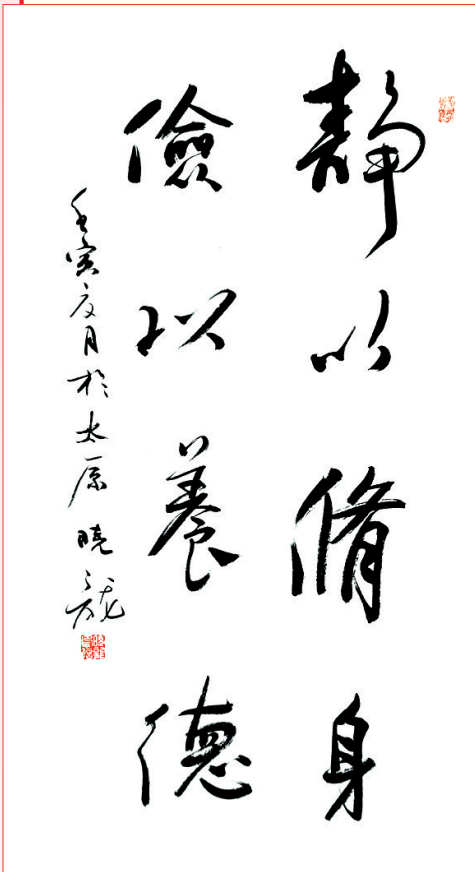 靜以脩身
儉以養德
壬寅夏月於太原 曉龍